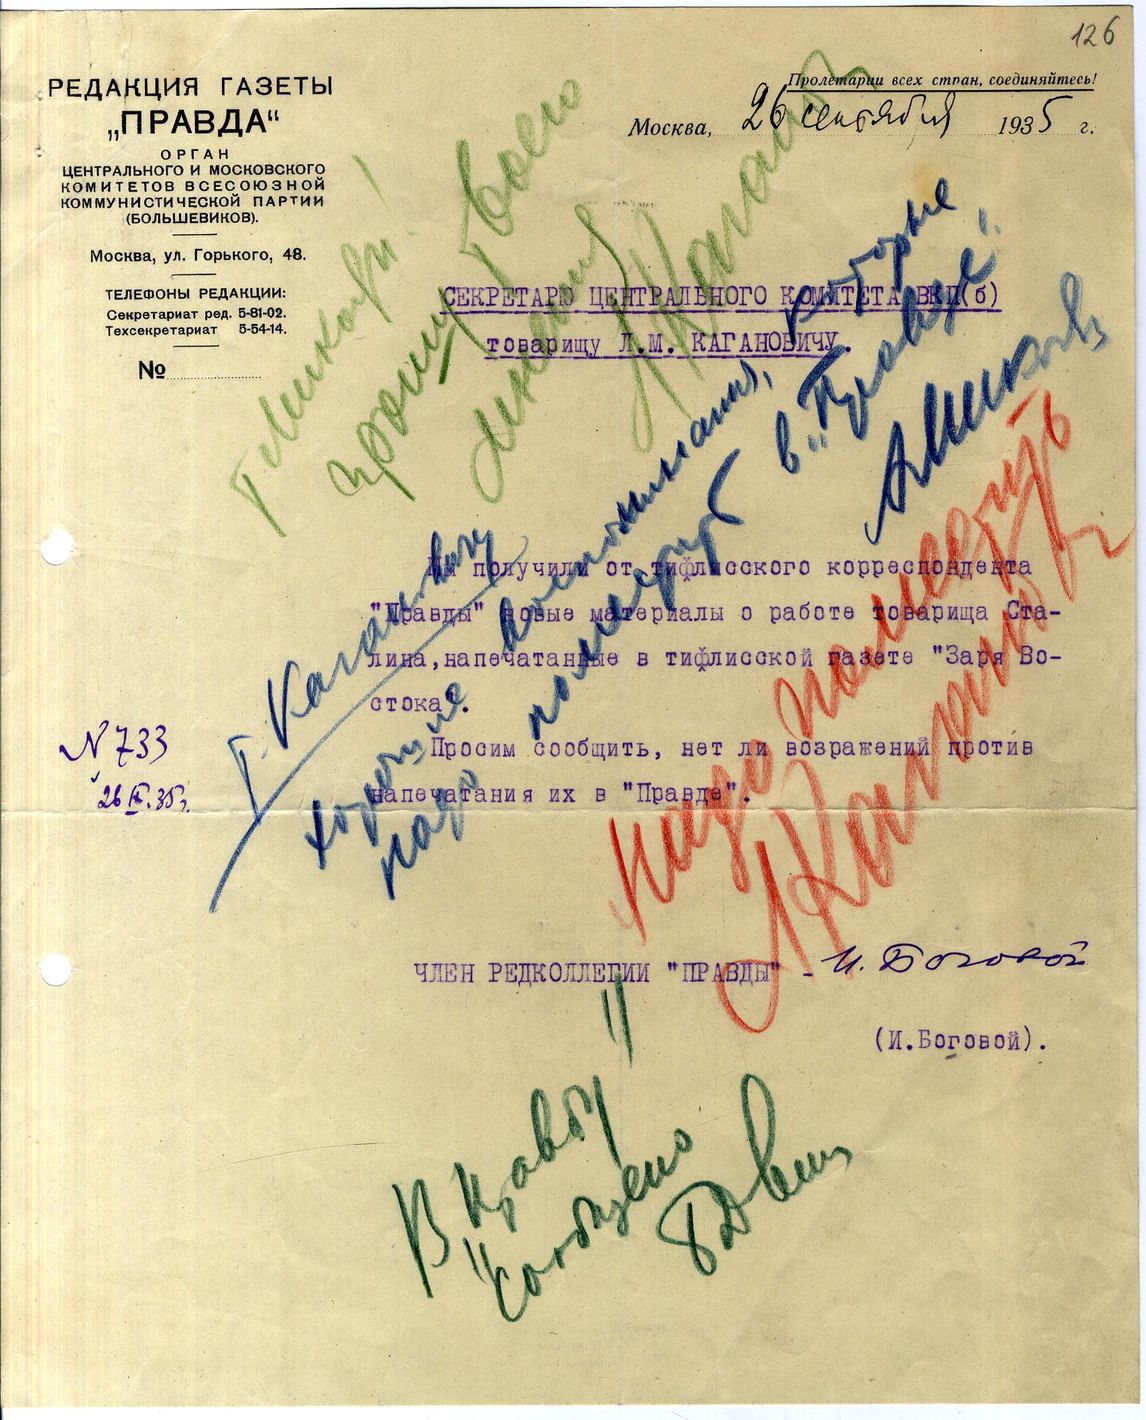 126
РЕДАКЦИЯ ГАЗЕТЫ
„ПРАВДА“
ОРГАН
ЦЕНТРАЛЬНОГО И МОСКОВСКОГО
КОМИТЕТОВ ВСЕСОЮЗНОЙ
КОММУНИСТИЧЕСКОЙ ПАРТИИ
(БОЛЬШЕВИКОВ).
Москва, ул. Горького, 48.
ТЕЛЕФОНЫ РЕДАКЦИИ:
Секретариат ред. 5-81-02.
Техсекретариат 5-54-14.
№
Пролетарии всех стран, соединяйтесь!
Москва, 26 сентября 1935 г.
т Микоян!
прошу твоего
мнения
Л Каганович
СЕКРЕТАРЮ ЦЕНТРАЛЬНОГО КОМИТЕТА ВКП(б)
товарищу Л.М. КАГАНОВИЧУ.
Мы получили от тифлисского корреспондента
"Правды" новые материалы о работе товарища Ста-
лина, напечатанные в тифлисской газете "Заря Во-
стока".
Просим сообщить, нет ли возражений против
напечатания их в "Правде".
Т. Кагановичу
хорошие воспоминания, которые
надо поместить в "Правде".
А Микоян
надо поместить
Л Каганович
N 733
26 IX.35г.
ЧЛЕН РЕДКОЛЛЕГИИ "ПРАВДЫ" - И. Боговой
(И.Боговой).
В "Правду"
сообщено